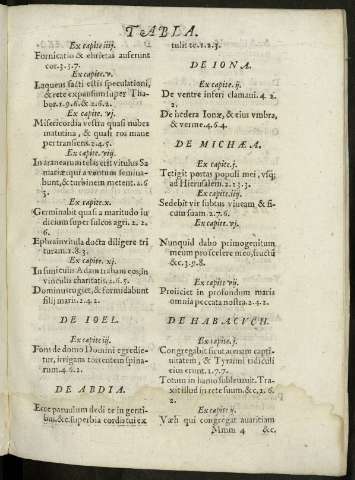 TABLA.
Ex capite iiij.
Fornicatio & ebrietas auferunt
cor. 3.5.7.
Ex capite v.
Laqueus facti estis speculationi,
& rete expansum super Tha
bor. 1.9.6. & 2.6.2.
Ex capite vj.
Misericordia vestra quasi nubes
matutina, & quasi ros mane
pertransiens. 2.4.5.
Ex capite viij.
In aranearum telas erit vitulus Sa
mariæ quia ventum semina-
bunt, & turbinem metent. 2.6
3.
Ex capite x.
Germinabit quasi amaritudo iu
dicium super sulcos agri. 2.2.
6.
Ephrain vitula docta diligere tri
turam. 1.8.3.
Ex capite xj.
In funiculis Adam traham eos, in
vinculis charitatis. 2.6.5.
Dominus rugiet, & formidabunt
filij maris. 2.4.2.
DE IOEL.
Ex capite iij.
Fons de domo Domini egredie-
tur, irrigans torrentem spina-
rum. 4.6.2.
DE ABDIA.
Ecce paruulum dedi te in genti-
bus. &c. superbia cordis tui ex
tulit te. 1.2.3.
DE IONA.
Ex capite ij.
De ventre inferi clamaui. 4.2.
2.
De hedera Ionæ, & eius vmbra,
& verme. 4.6.4.
DE MICHÆA.
Ex capite j.
Tetigit portas populi mei, vsq;
ad Hierusalem. 2.1.3.3.
Ex capite iiij.
Sedebit vir subtus vineam & fi-
cum suam. 2.7.6.
Ex capite vj.
Nunquid dabo primogenitum
meum pro scelere meo, fructũ
&c. 3.9.8.
Ex capite vij.
Proijciet in profundum maris
omnia peccata nostra. 2.4.2.
DE HABACVCH.
Ex capite j.
Congregabit sicut arenam capti-
uitatem, & Tyranni ridiculi
eius erunt. 1.7.7.
Totum in hamo subleuauit. Tra-
xit illud in rete suum. &c. 2.6.
2.
Ex capite ij.
Væh qui congregat auaritiam
Mmm 4 &c.